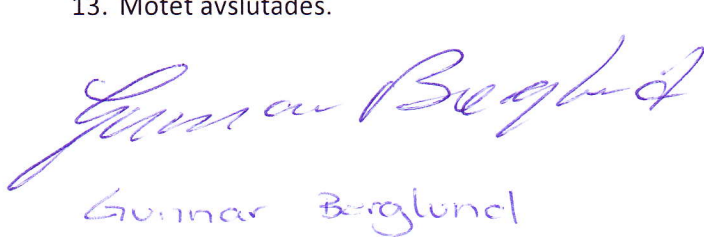 13. Mötet avslutades.
Gunnar Berglund
Gunnar Berglund